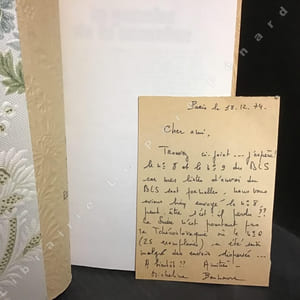 Paris le 18.12.74.
Cher ami,
Trouvez ci-joint... j'espère
le n° 8 et le n° 9 du BLS
car mes listes d'envoi du
BLS sont formelles, nous vous
avions bien envoyé le n° 8,
peut être s'est-il perdu ??
la Suède n'est pourtant pas
la Tchécoslovaquie où le n° 0
(25 exemplaires) a été saisi
malgré des envois dispersés...
A bientôt ? Amitiés
Micheline Bounoure